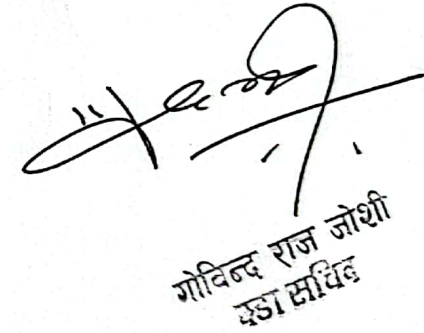 गोविन्द राज जोशी
वडा सचिव